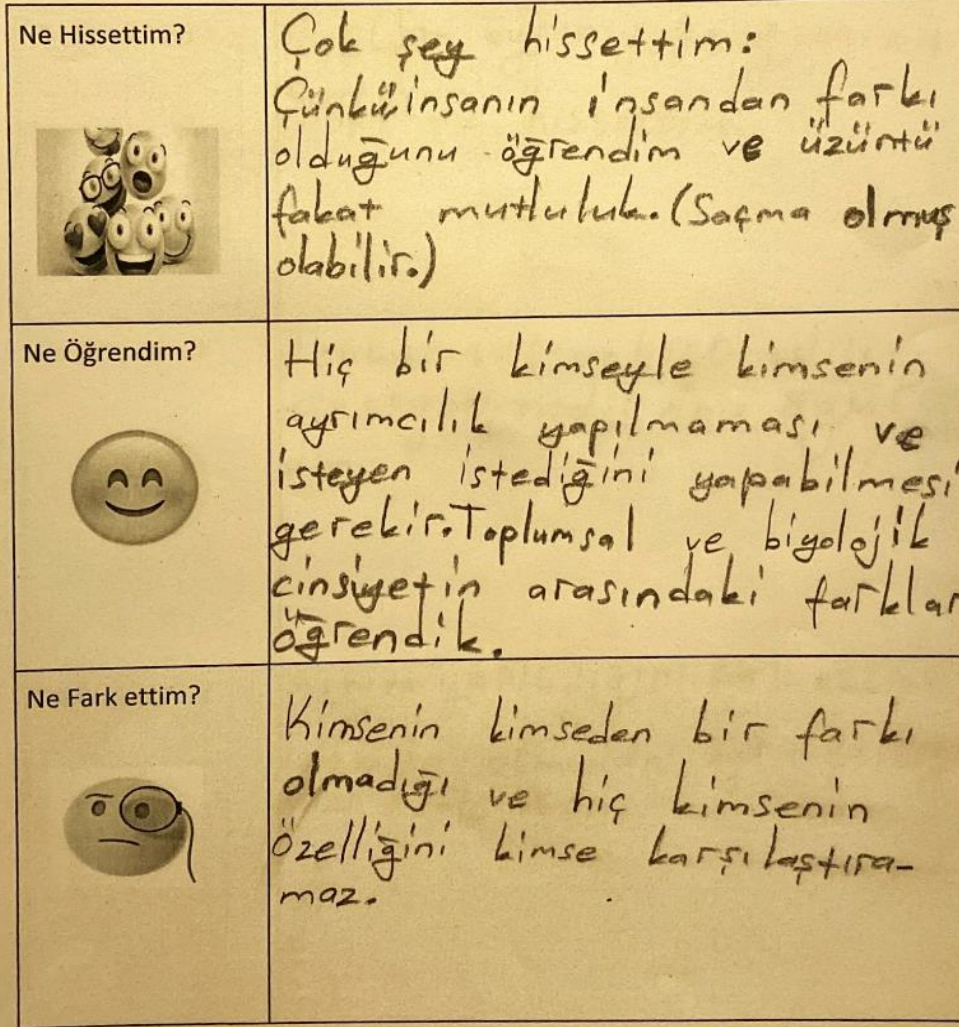 Ne Hissettim?
Çok şey hissettim:
Çünkü insanın insandan farkı
olduğunu öğrendim ve üzüntü
fakat mutluluk. (Saçma olmuş
olabilir.)
Ne Öğrendim?
Hiç bir kimseyle kimsenin
ayrımcılık yapılmaması ve
isteyen istediğini yapabilmesi
gerekir. Toplumsal ve biyolojik
cinsiyetin arasındaki farklar
öğrendik.
Ne Fark ettim?
Kimsenin kimseden bir farkı
olmadığı ve hiç kimsenin
özelliğini kimse karşılaştıra-
maz.